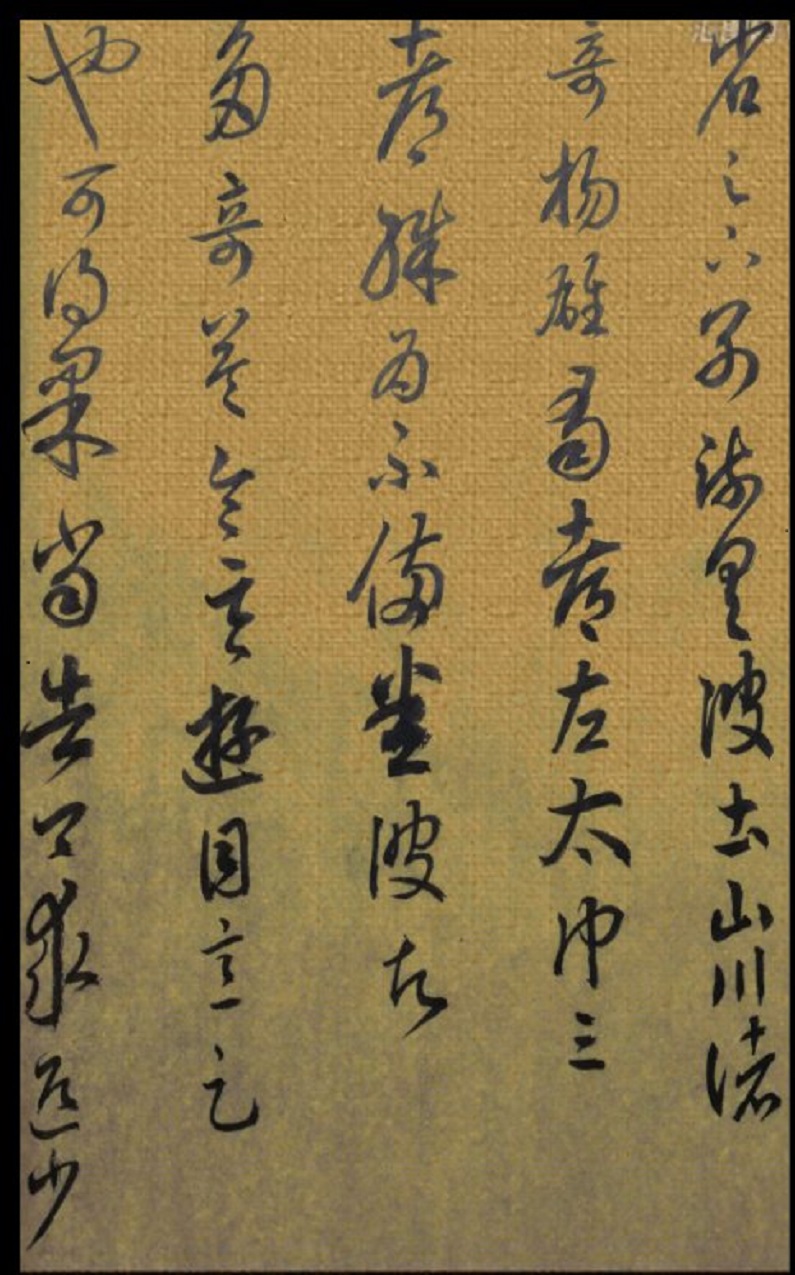 省足下別疏具彼土山川諸
奇楊雄蜀都左太沖三
都殊為不備悉彼故
多奇益令其遊目意足
也可得果當告卿求迎少